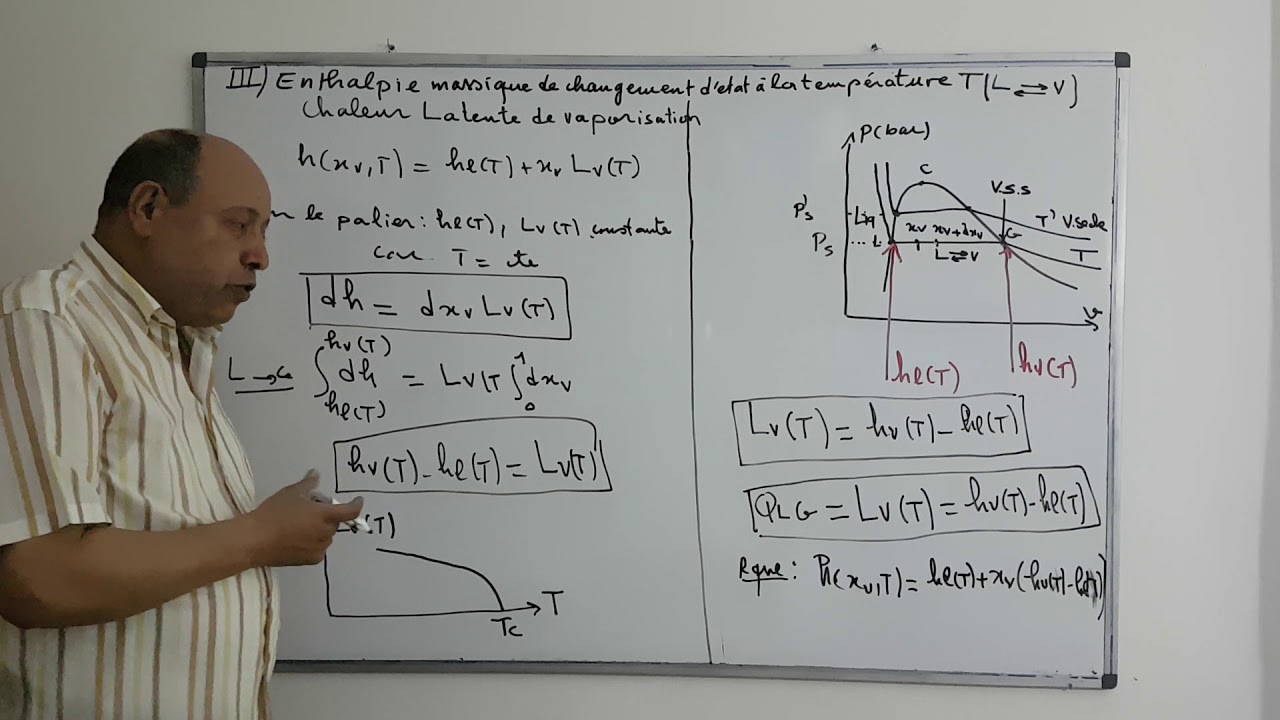 III) Enthalpie massique de changement d'etat à la température T (L ⇄ V)
Chaleur Latente de vaporisation
h(xv,T) = hl(T) + xv Lv(T)
le palier : hl(T), Lv(T) constante
car T = cte
dh = dxv Lv(T)
L → G ∫ dh = Lv(T ∫ dxv
hv(T)
hl(T)
1
0
hv(T) - hl(T) = Lv(T)
(T)
T
Tc
P(bar)
C
V.S.S
P's
Liq
xv xv+dxv
T' V.seche
Ps
L
L ⇄ V
G
T
v
hl(T)
hv(T)
Lv(T) = hv(T) - hl(T)
QLG = Lv(T) = hv(T) - hl(T)
Rque : h(xv,T) = hl(T) + xv(hv(T) - hl(T))